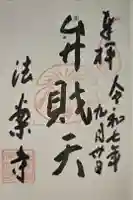 奉拝
令和七年
九月廿日
弁財天
法楽寺